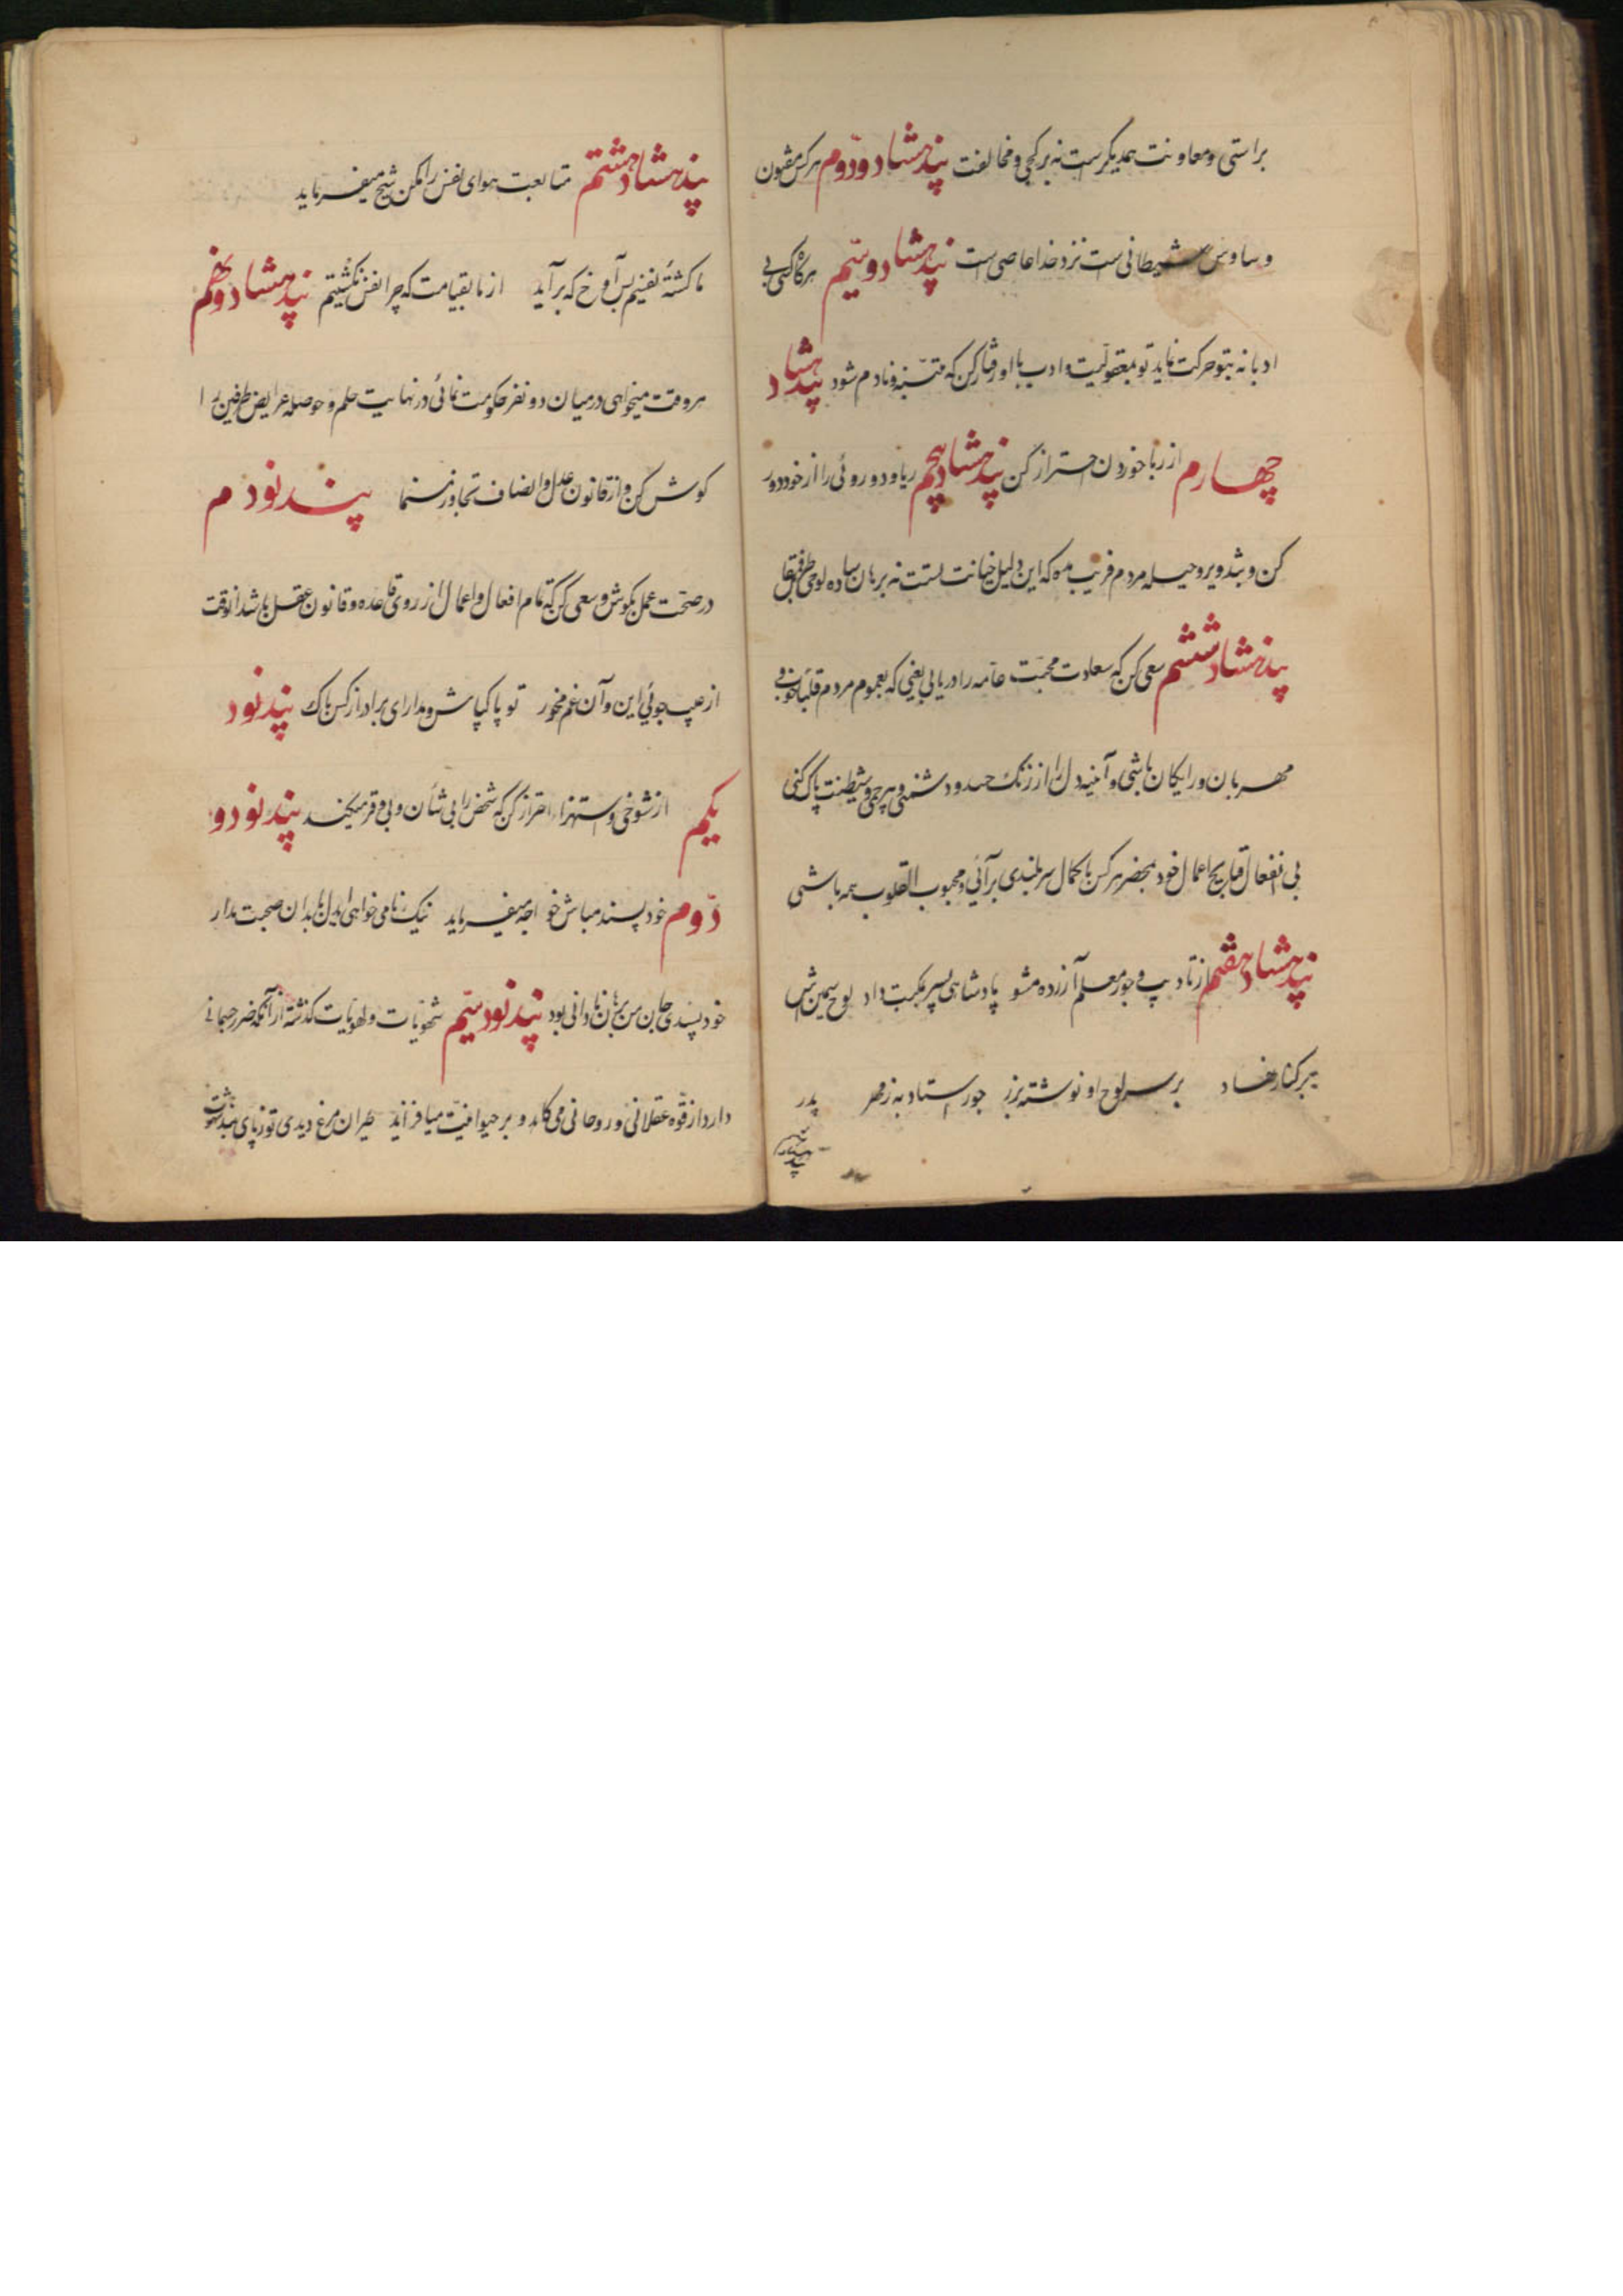 براستی و معاونت همدیگرست نه بر کجی و مخالفت پند هشتاد و دوم هر کس مفتون
وساوس شیطانی است نزد خدا عاصی است پند هشتاد و سیّم هرگاه کسی بی
ادبانه بتو حرکت نماید تو بمعقولیت و ادب با او رفتار کن که متنبّه و نادم شود پند هشتاد
چهارم از ربا خوردن احتراز کن پند هشتاد پنجم ریا و دوروئی را از خود دور
کن و بتدویر و حیله مردم فریب مده که این دلیل خیانت تست نه برهان ساده لوحی طرف مقابل
پند هشتاد ششم سعی کن که سعادت محبّت عامّه را دریابی یعنی که بعموم مردم قلباً خوب و
مهربان و رایگان باشی و آینه دل را از زنک حسد و دشمنی و بیرحمی و شیطنت پاک کنی
بی انفعال قبایح اعمال خود بمحضر هر کس با کمال سربلندی برآئی و محبوب القلوب همه باشی
پند هشتاد هفتم از تادیب و جور معلم آزرده مشو پادشاهی پسر بمکتب داد لوح سیمینش
برکنار نهاد بر سر لوح او نوشته بزر جور استاد به ز مهر پدر
پند هشتاد هشتم متابعت هوای نفس را مکن شیخ میفرماید
ما کشتهٔ نفسیم بس آوخ که برآید از ما بقیامت که چرا نفس نکشتیم پند هشتاد و نهم
هر وقت میخواهی در میان دو نفر حکومت نمائی در نهایت حلم و حوصله عرایض طرفین را
گوش کن و از قانون عدل و انصاف تجاوز منما پند نودم
در صحّت عمل بکوش و سعی کن که تمام افعال و اعمال از روی قاعده و قانون عقل باشد آنوقت
از عیب جوئی این و آن غم مخور تو پاک باش و مدار ای برادر از کس باک پند نود
یکم از شوخی و استهزاء احتراز کن که شخص را بی شأن و بی وقر میکند پند نود و
دوّم خودپسند مباش خواجه میفرماید نیک نامی خواهی ای دل با بدان صحبت مدار
خودپسندی جان من برهان نادانی بود پند نود سیّم شهویات و لهویات گذشته از آنکه ضرر جسمانی
دارد از قوّه عقلانی و روحانی می کاهد و بر حیوانیت میافزاید طیران مرغ دیدی تو ز پای بند شهوت